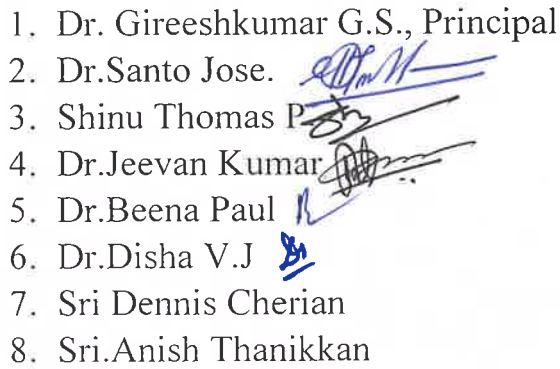 1. Dr. Gireeshkumar G.S., Principal
2. Dr.Santo Jose.
3. Shinu Thomas P
4. Dr.Jeevan Kumar
5. Dr.Beena Paul
6. Dr.Disha V.J
7. Sri Dennis Cherian
8. Sri.Anish Thanikkan